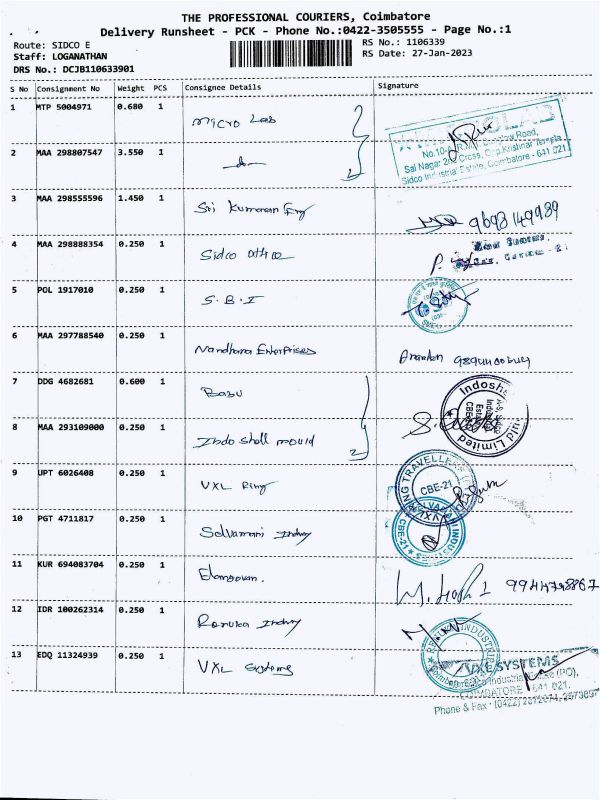 THE PROFESSIONAL COURIERS, Coimbatore
Delivery Runsheet - PCK - Phone No.:0422-3505555 - Page No.:1
Route: SIDCO E
RS No.: 1106339
Staff: LOGANATHAN
RS Date: 27-Jan-2023
DRS No.: DCJB110633901
S No Consignment No Weight PCS Consignee Details Signature
1 MTP 5004971 0.680 1 Micro Lab
2 MAA 298807547 3.550 1
No.10-A,
Sai Nagar 2nd Cross,
Sidco Industrial Estate, Coimbatore - 641 021
3 MAA 298555596 1.450 1 Sri Kumaran Eng 9698149989
4 MAA 298888354 0.250 1 Sidco Office
5 POL 1917010 0.250 1 S.B.I
6 MAA 297788540 0.250 1 Nandhana Enterprises
7 DDG 4682681 0.600 1 Babu
8 MAA 293109000 0.250 1 Indo Shell mould 2
Limited
9 UPT 6026408 0.250 1 VXL Ring
CBE-21
10 PGT 4711817 0.250 1 Selvamani Industry
CBE-21
11 KUR 694083704 0.250 1 Elangovan.
12 IDR 100262314 0.250 1 Renuka Industry
13 EDQ 11324939 0.250 1 VXL Systems
VXL SYSTEMS
COIMBATORE - 641 021.
Phone & Fax : (0422)